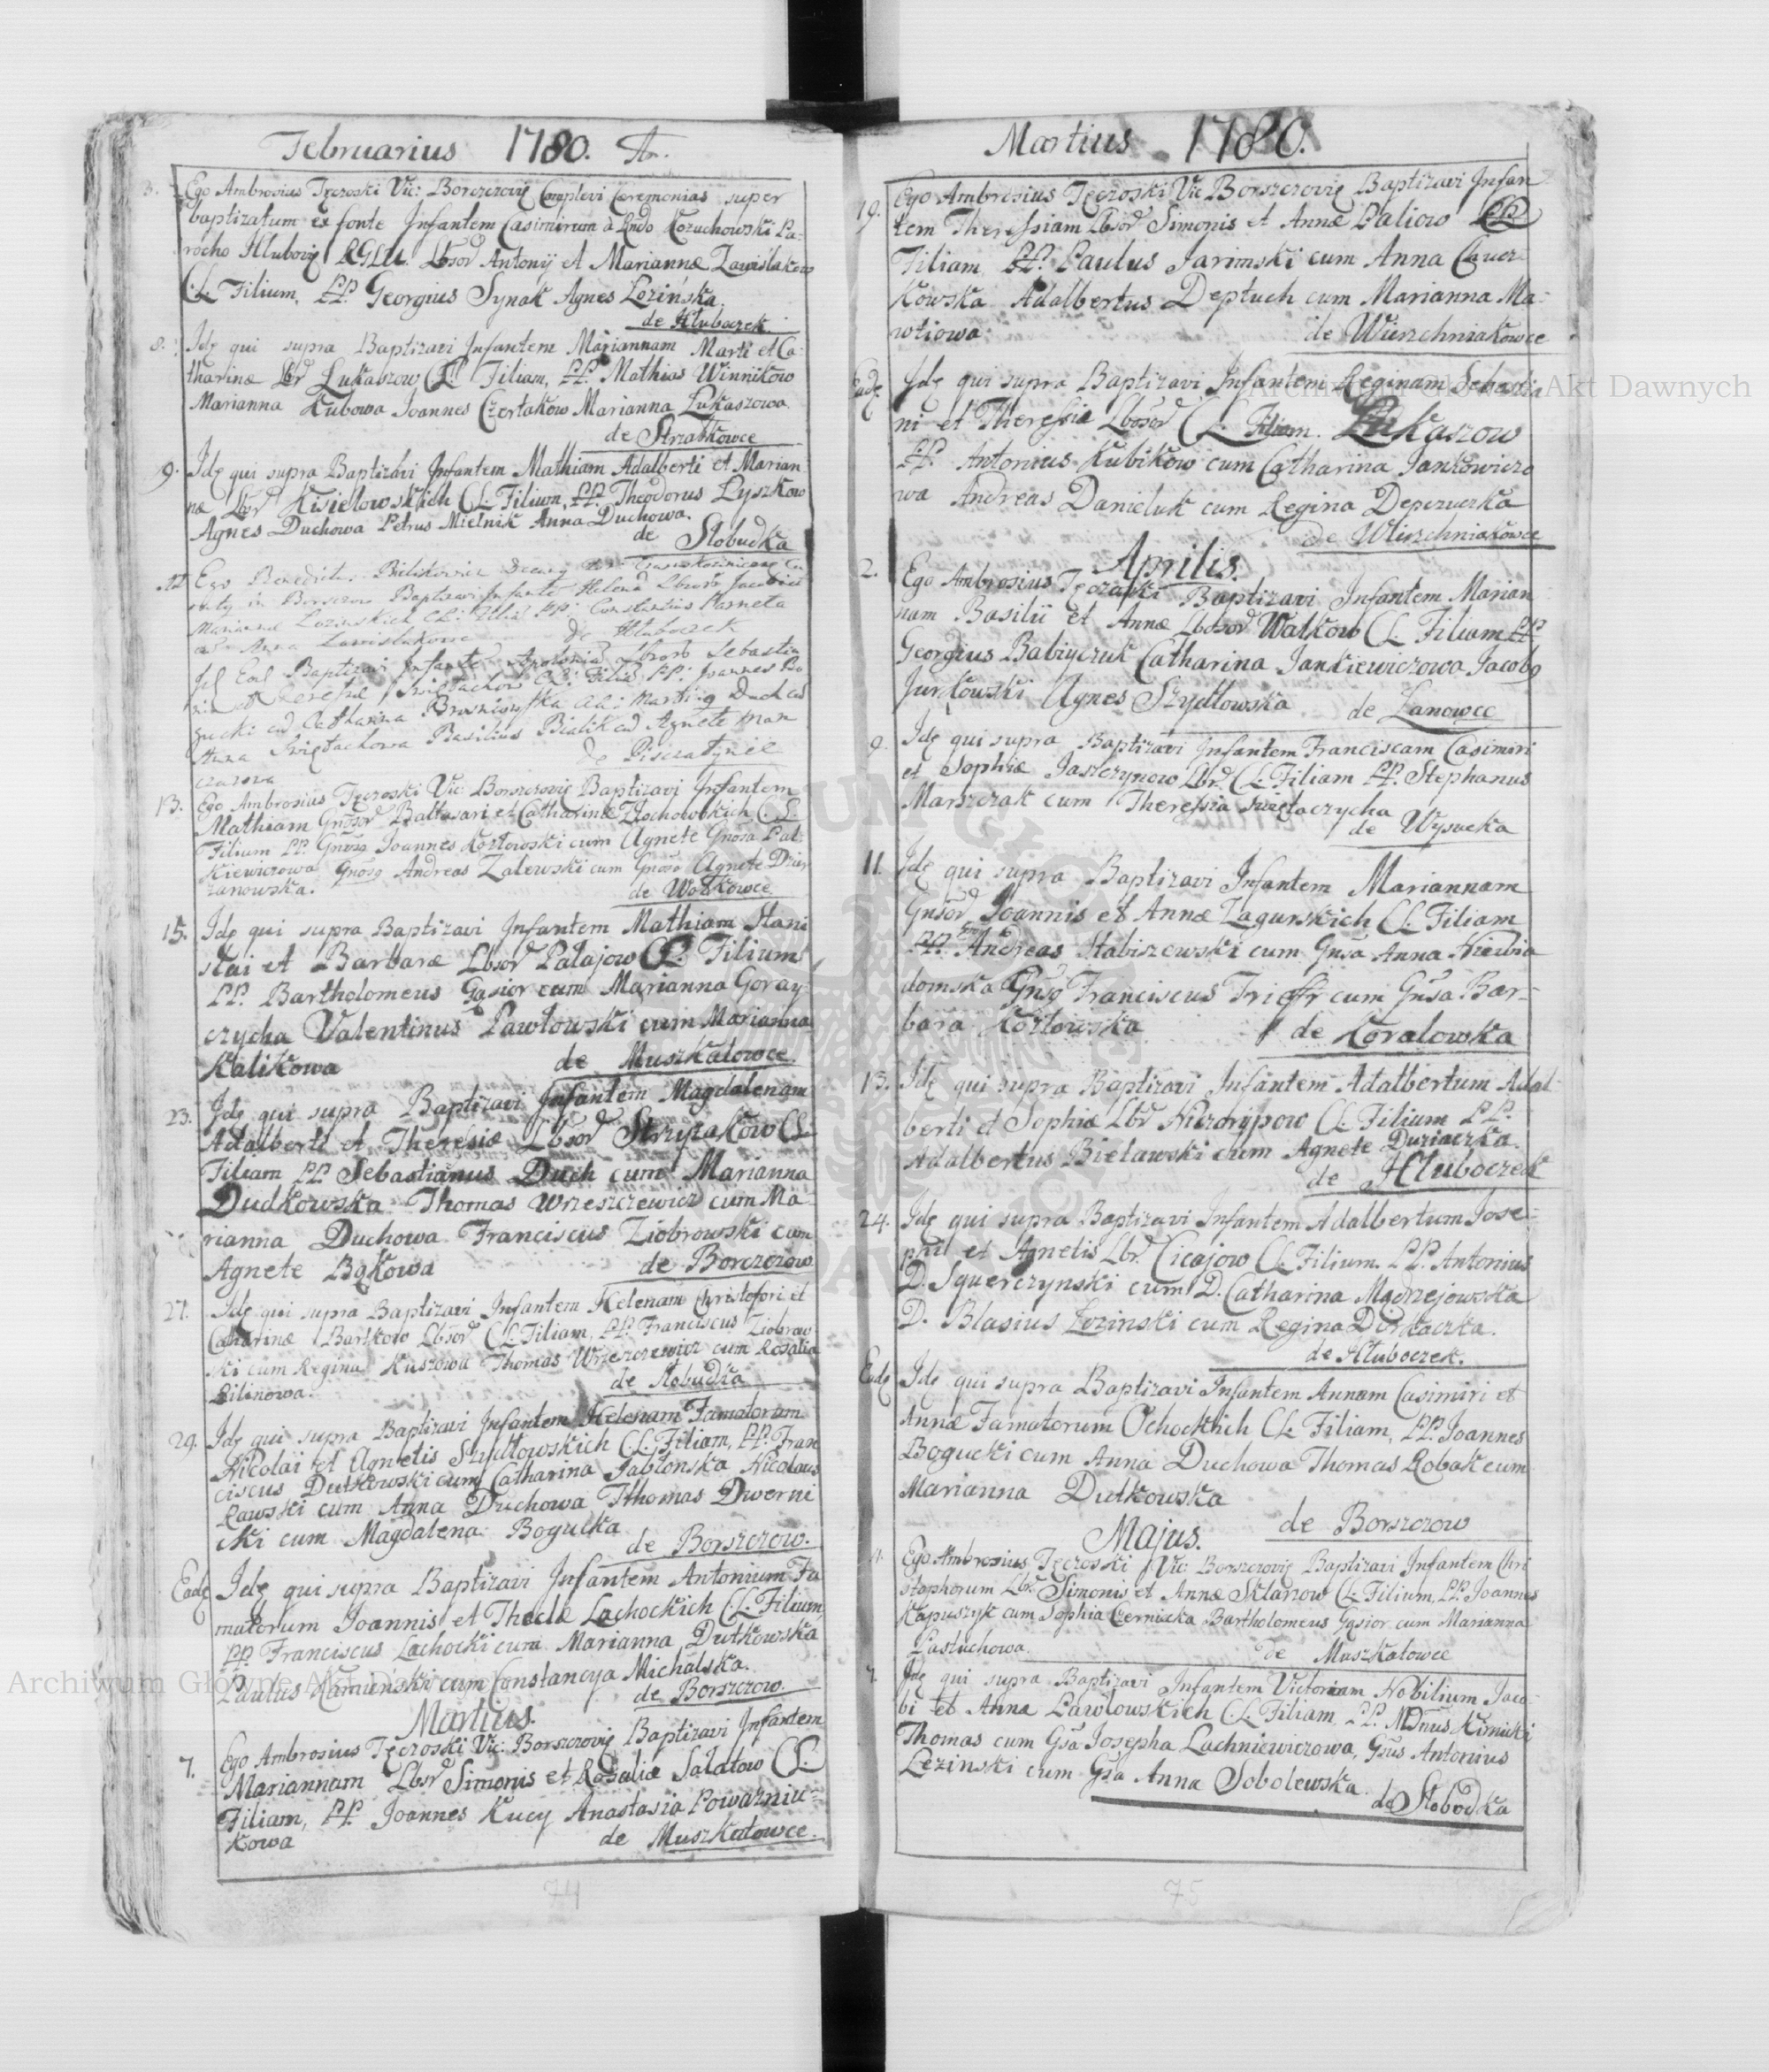 Februarius 1780. A.
3. Ego Ambrosius Tęczoski Vic: Borczczovię Complevi Ceremonias super
baptizatum ex fonte Infantem Casimirum à Rndo Kozuchowski Pa-
rocho Hlubovię Lbsor Antonij et Mariannæ Zawislakow
C.L. Filium, PP. Georgius Synak Agnes Lozińska.
de Hluboczek.
8. Idę qui supra Baptizavi Infantem Mariannam Marti et Ca-
tharinæ Lbr Lukaszow CL. Filiam, PP. Mathias Winnikow
Marianna Kubowa Joannes Czortakow Marianna Lukaszowa.
de Strzalkowce
9. Idę qui supra Baptizavi Infantem Mathiam Adalberti et Marian
næ Lbr Kisielowskich CL. Filium, PP. Theodorus Lyszkow
Agnes Duchowa Petrus Mielnik Anna Duchowa.
de Slobudka
Ego Benedictus
in Borszczow Baptizavi Infante Helena Lbrorū Jacobi et
Mariannæ Lozinskich CL: Filiā PP: Constantius Parneta
Anna Zawislakowa de Hluboczek
Baptizavi Infantē Apolonia Lbrorū Sebastia
ni et Teresiæ Swiętachow CL: Filiā PP: Joannes Bo
gucki cū Catharina Browniowska Martinę Duch cū
Anna Swiętachowa Basilius Bialik cū Agnete Man
czarova de Piszczatynie
13. Ego Ambrosius Tęczoski Vic: Borszczovię Baptizavi Infantem
Mathiam Gnsor Baltasari et Catharinæ Zlochowskich C.L.
Filium PP. Gnsus Joannes Kozlowski cum Agnete Gnosa Pal-
kiewiczowa Gnosę Andreas Zalewski cum Gnosa Agnete Dzier
zanowska. de Wolkowce
15. Idę qui supra Baptizavi Infantem Mathiam Stani
slai et Barbaræ Lbsor Palajow CL. Filium
PP. Bartholomeus Gąsior cum Marianna Goray
czycha Valentinus Pawlowski cum Marianna
Kalikowa de Muszkatowce.
23. Idę qui supra Baptizavi Infantem Magdalenam
Adalberti et Theresiæ Lbsor Strzyzakow CL.
Filiam PP. Sebastianus Duch cum Marianna
Dudkowska Thomas Wrzeszczewicz cum Ma-
rianna Duchowa Franciscus Ziobrowski cum
Agnete Bąkowa de Borczczow
27. Idę qui supra Baptizavi Infantem Helenam Christofori et
Catharinæ Bartkow Lbsor CL. Filiam, PP. Franciscus Ziobrow
ski cum Regina Kuszowa Thomas Wrzeszczewicz cum Rosalia
Bilinowa. de Slobudka
29. Idę qui supra Baptizavi Infantem Helenam Famatorum
Nicolai et Agnetis Szydlowskich C.L. Filiam, PP. Fran
ciscus Dutkowski cum Catharina Jablonska Nicolaus
Rawski cum Anna Duchowa Thomas Dwerni
cki cum Magdalena Bogucka de Borszczow.
Eadę Idę qui supra Baptizavi Infantem Antonium Fa
matorum Joannis et Theclæ Lachockich C.L. Filium,
PP. Franciscus Lachocki cum Marianna Dutkowska
Paulus Kamieński cum Constancya Michalska.
de Borszczow.
Martius.
7. Ego Ambrosius Tęczoski Vic: Borszczovię Baptizavi Infantem
Mariannam Lbsr Simonis et Rosaliæ Salatow CL.
Filiam, PP. Joannes Kucy Anastasia Powazniu-
kowa de Muszkatowce.
74
Martius 1780.
19. Ego Ambrosius Tęczoski Vic Borszczovię Baptizavi Infan
tem Theressiam Lbsor Simonis et Annæ Paliow
Filiam PP. Paulus Jarimski cum Anna Czucz-
kowska Adalbertus Deptuch cum Marianna Ma-
wtiowa de Wierzchniakowce
Eadę Idę qui supra Baptizavi Infantem Reginam Sebastia
ni et Theressia Lbsor CL. Filiam. Lukaszow
PP. Antonius Kubikow cum Catharina Jankowiczo
wa Andreas Danieluk cum Regina Depczuczka
de Wierzchniakowce
Aprilis.
2. Ego Ambrosius Tęczoski Baptizavi Infantem Marian
nam Basilii et Annæ Lbsor Walkow CL. Filiam PP.
Georgius Babiyczuk Catharina Jankiewiczowa Jacobę
Jurkowski Agnes Szydlowska de Lanowce
9. Idę qui supra Baptizavi Infantem Franciscam Casimiri
et Sophiæ Jaszczynow Lbr. CL. Filiam PP. Stephanus
Marszczak cum Theressia Swietaczycha
de Wysuczka
11. Idę qui supra Baptizavi Infantem Mariannam
Gnsor Joannis et Annæ Zagurskich CL. Filiam
PP. Gnsus Andreas Slabiszewski cum Gnsa Anna Niewia
domska Gnsę Franciscus Triefr cum Gnsa Bar-
bara Kozlowska de Korolowka
13. Idę qui supra Baptizavi Infantem Adalbertum Adal-
berti et Sophiæ Lbr Niczorypow CL. Filium PP.
Adalbertus Bielawski cum Agnete Duziaczka.
de Hluboczek
24. Idę qui supra Baptizavi Infantem Adalbertum Jose-
phi et Agnetis Lbr. Cicajow CL. Filium. PP. Antonius
D. Sguerczynski cum D. Catharina Mądrzejowska
D. Blasius Lozinski cum Regina Dirkaczka.
de Hluboczek.
Eadę Idę qui supra Baptizavi Infantem Annam Casimiri et
Annæ Famatorum Ochockich CL. Filiam, PP. Joannes
Bogucki cum Anna Duchowa Thomas Robak cum
Marianna Dutkowska
de Borszczow
Majus.
4. Ego Ambrosius Tęczoski Vic: Borszczovię Baptizavi Infantem Chri
stophorum Lbr. Simonis et Annæ Sklarzow CL. Filium, PP. Joannes
Kapuszyk cum Sophia Czernicka Bartholomeus Gąsior cum Marianna
Pastuchowa. de Muszkatowce
7. Idę qui supra Baptizavi Infantem Victoriam Nobilium Jaco-
bi et Annæ Pawlowskich C.L. Filiam, PP. MDnus Kimicki
Thomas cum Gsa Josepha Lachniewiczowa, Gsus Antonius
Lezinski cum Gsa Anna Sobolewska.
de Slobodka
75
Archiwum Główne Akt Dawnych
Archiwum Główne Akt Dawnych